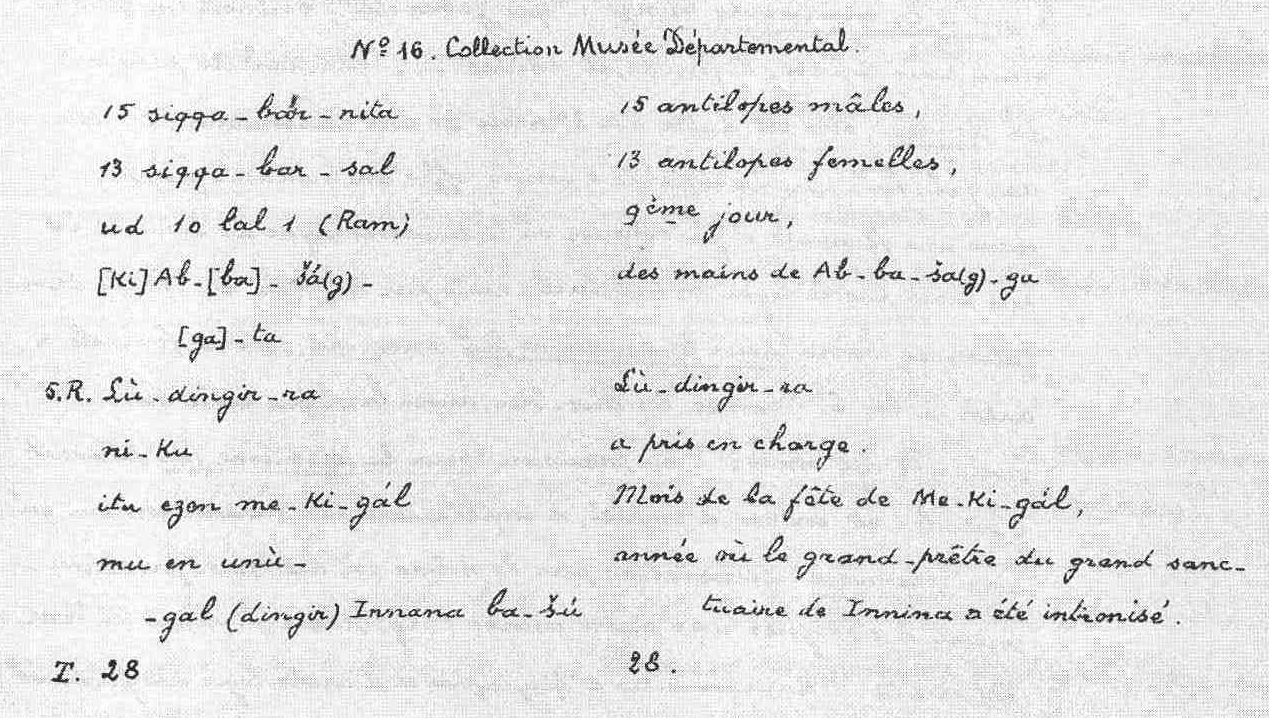 Nº 16. Collection Musée Départemental.
15 sigga-bár-nita 15 antilopes mâles,
13 sigga-bar-sal 13 antilopes femelles,
ud 10 lal 1 (Ram) 9ème jour,
[Ki] Ab-[ba]-šá(g)- des mains de Ab-ba-ša(g)-gu
[ga]-ta
5.R. Lù-dingir-ra Lù-dingir-ra
ni-Ku a pris en charge.
itu ezen me-Ki-gál Mois de la fête de Me-Ki-gál,
mu en unù- année où le grand-prêtre du grand sanc-
-gal (dingir) Innana ba-šú tuaire de Innina a été intronisé.
T. 28 28.